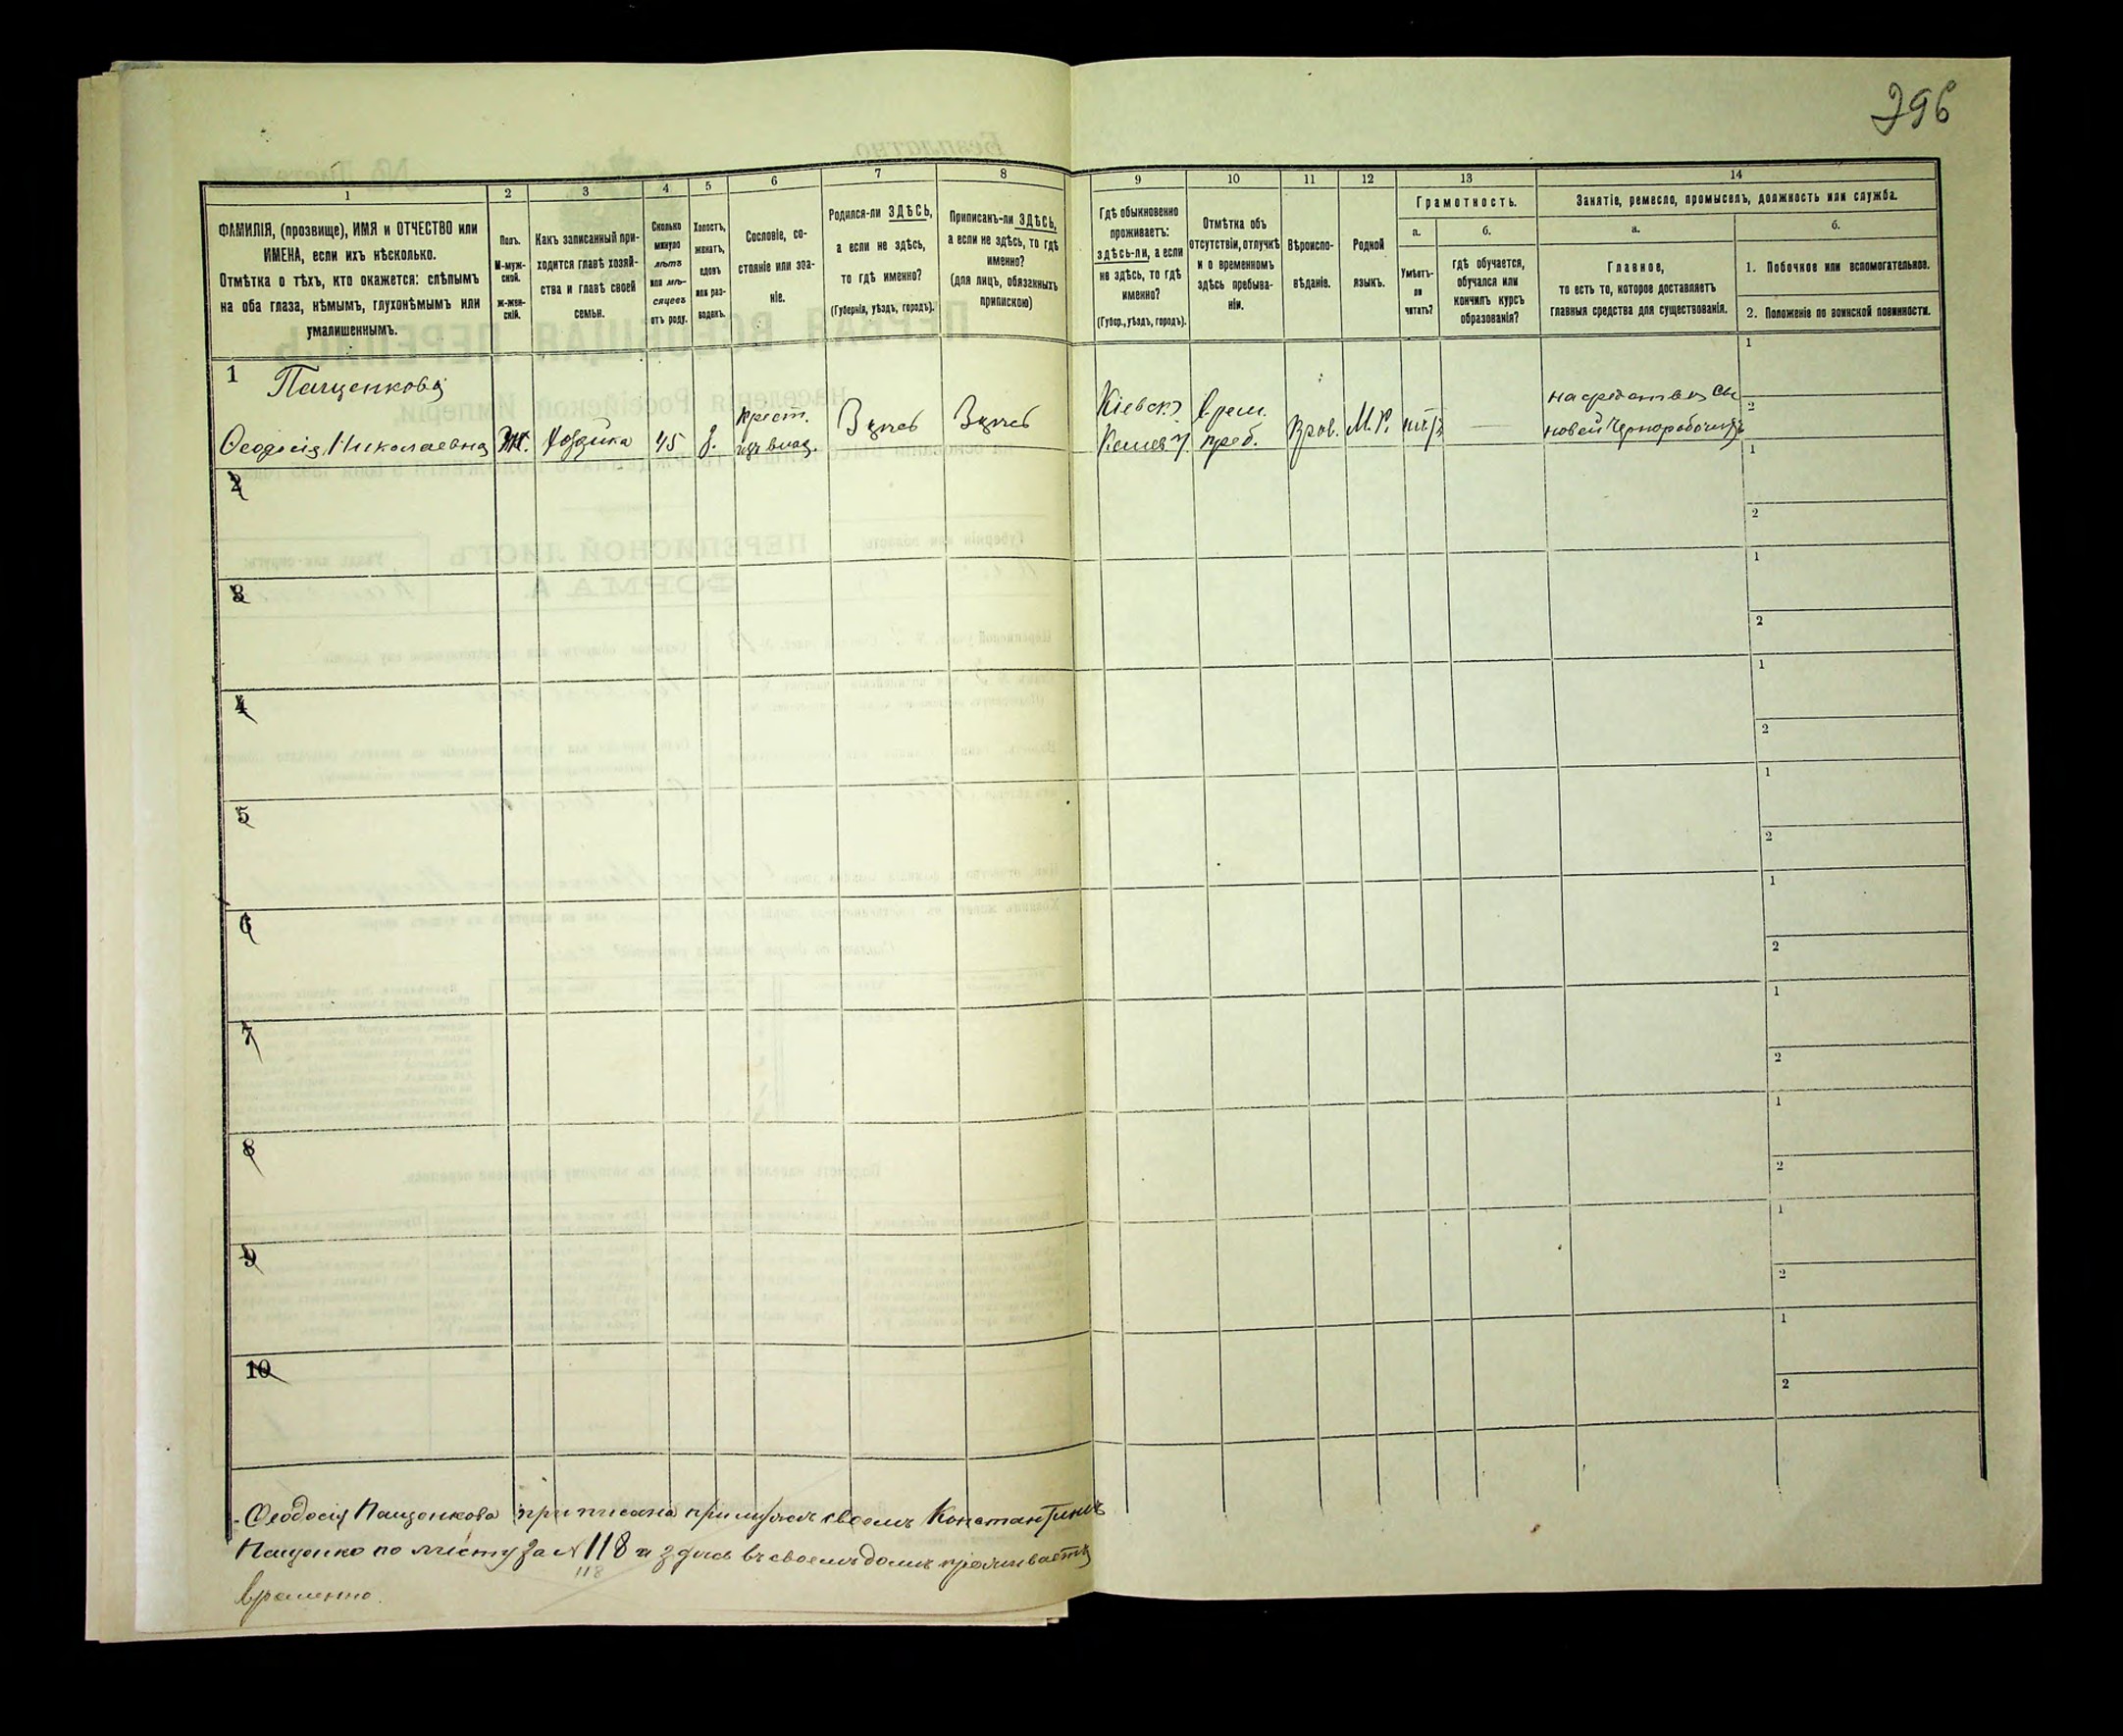 296
1
2
3
4
5
6
7
8
9
10
11
12
13
14
ФАМИЛІЯ, (прозвище), ИМЯ и ОТЧЕСТВО или
ИМЕНА, если ихъ нѣсколько.
Отмѣтка о тѣхъ, кто окажется: слѣпымъ
на оба глаза, нѣмымъ, глухонѣмымъ или
умалишеннымъ.
Полъ.
М-муж-
ской.
Ж-жен-
скій.
Какъ записанный при-
ходится главѣ хозяй-
ства и главѣ своей
семьи.
Сколько
минуло
лѣтъ
или мѣ-
сяцевъ
отъ роду.
Холостъ,
женатъ,
вдовъ
или раз-
веденъ.
Сословіе, со-
стояніе или зва-
ніе.
Родился-ли ЗДѢСЬ,
а если не здѣсь,
то гдѣ именно?
(Губернія, уѣздъ, городъ).
Приписанъ-ли ЗДѢСЬ,
а если не здѣсь, то гдѣ
именно?
(для лицъ, обязанныхъ
припискою)
Гдѣ обыкновенно
проживаетъ:
здѣсь-ли, а если
не здѣсь, то гдѣ
именно?
(Губер., уѣздъ, городъ).
Отмѣтка объ
отсутствіи, отлучкѣ
и о временномъ
здѣсь пребыва-
ніи.
Вѣроиспо-
вѣданіе.
Родной
языкъ.
Грамотность.
а.
Умѣетъ-
ли
читать?
б.
гдѣ обучается,
обучался или
кончилъ курсъ
образованія?
Занятіе, ремесло, промыселъ, должность или служба.
а.
Главное,
то есть то, которое доставляетъ
главныя средства для существованія.
б.
1. Побочное или вспомогательное.
2. Положеніе по воинской повинности.
1
Пащенкова
Ѳеодосія Николаевна
Ж.
Хозяйка
45
З.
крест.
изъ влад.
Здѣсь
Здѣсь
Кіевск.
Каневъ у.
врем.
преб.
Прав.
М.Р.
нѣтъ
—
на средства сы
новей Чернорабочихъ
1
2
2
1
2
3
1
2
4
1
2
5
1
2
6
1
2
7
1
2
8
1
2
9
1
2
10
1
2
Ѳеодосія Пащенкова приписана при мужѣ своемъ Константинѣ
Пащенко по листу за № 118 а здѣсь въ своемъ домѣ проживаетъ
118
временно.